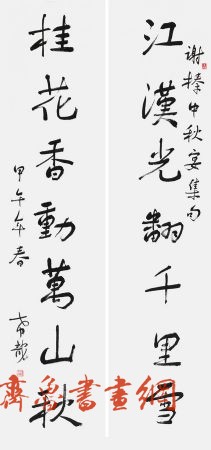 江漢光翻千里雪
謝榛中秋宴集句
桂花香動萬山秋
甲午年春
齊魯書畫網